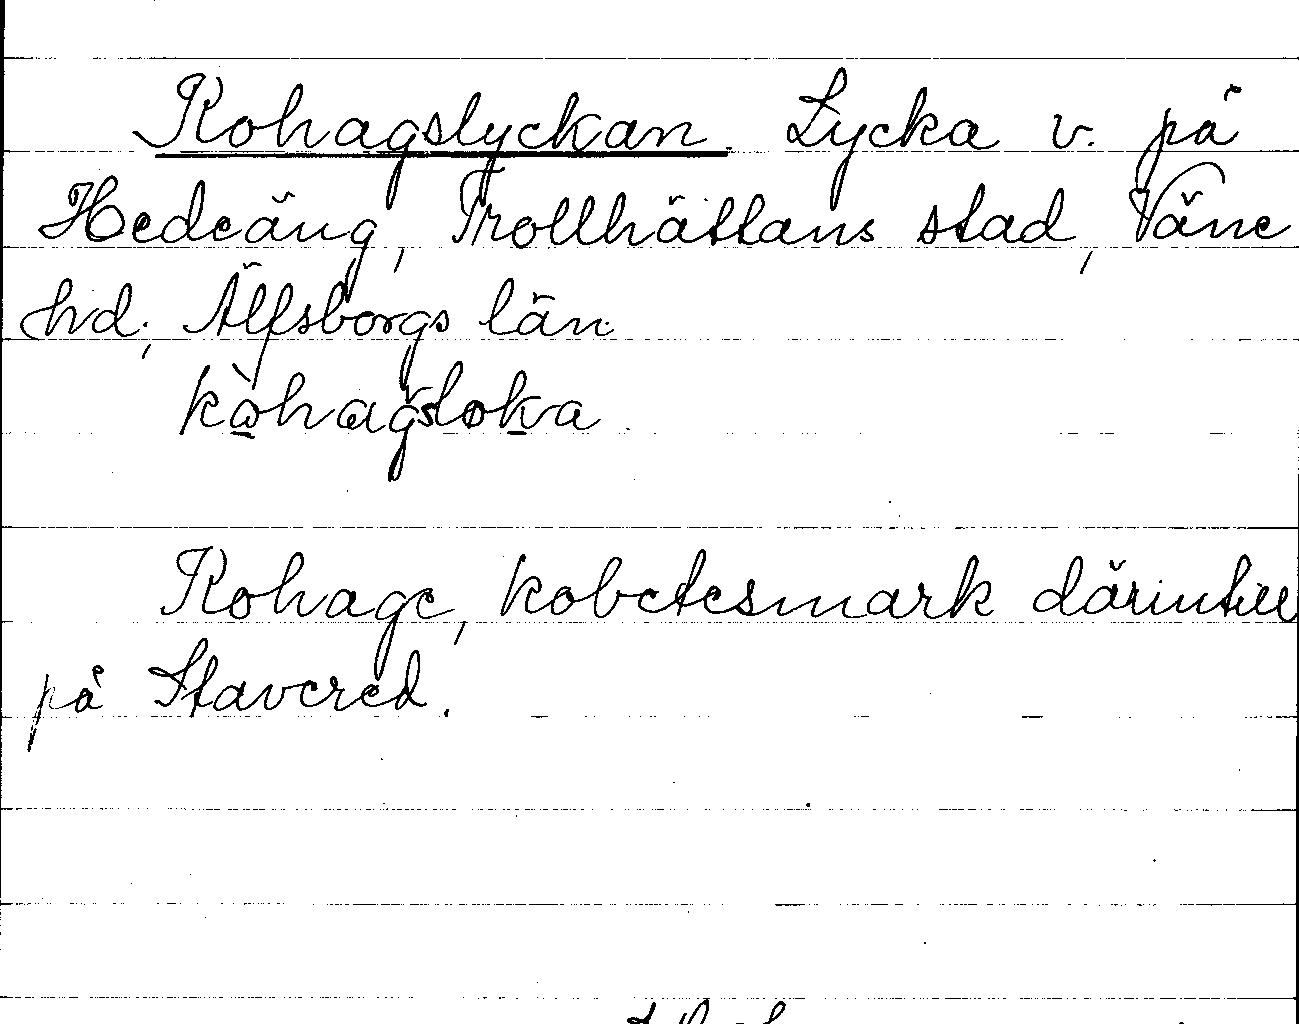 Kohagslyckan. Lycka v. på
Hedeäng, Trollhättans stad, Väne
hd; Älfsborgs län
kòhagsloka
Kohage, kobetesmark därintill
på Stavered.